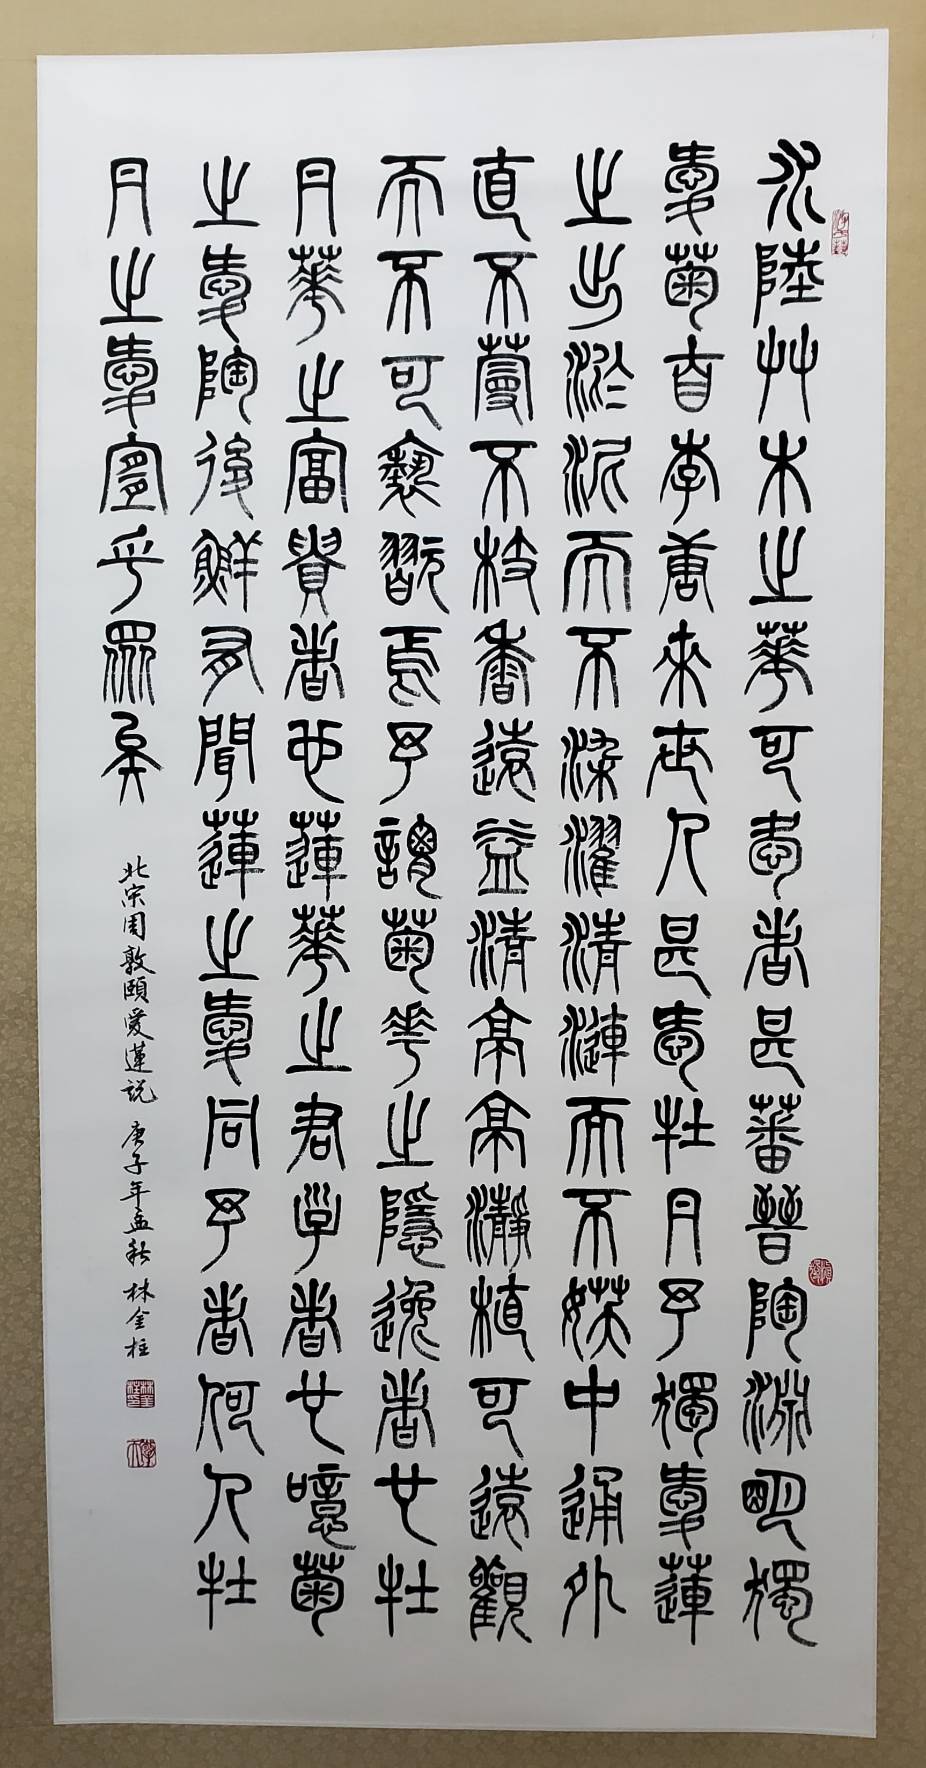 水陸艸木之華可愛者甚蕃晉陶淵明獨
愛菊自李唐來世人甚愛牡丹予獨愛蓮
之出淤泥而不染濯清漣而不妖中通外
直不蔓不枝香遠益清亭亭瀞植可遠觀
而不可褻翫焉予謂菊花之隱逸者也牡
丹華之富貴者也蓮華之君子者也噫菊
之愛陶後鮮有聞蓮之愛同予者何人牡
丹之愛宜乎眾矣
北宋周敦頤愛蓮說 庚子年孟秋 林金柱